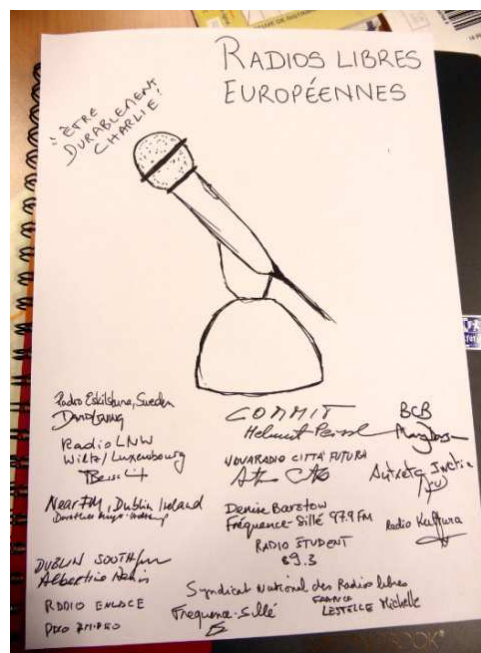 RADIOS LIBRES
EUROPÉENNES
"ÊTRE
DURABLEMENT
CHARLIE!
Radio Eskilstuna, Sweden
Radio LNW
Wiltz/Luxembourg
Near FM, Dublin Ireland
DUBLIN SOUTH fm
RADIO ENLACE
COMMIT
Helmut Peissl
NOVARADIO CITTÀ FUTURA
Denise Barstow
Fréquence-Sillé 97.9 FM
RADIO STUDENT
89.3
Syndicat National des Radios libres
Fréquence-Sillé
FRANCE
LESTELLE Michelle
BCB
Antxeta Irratia
Radio Kultura